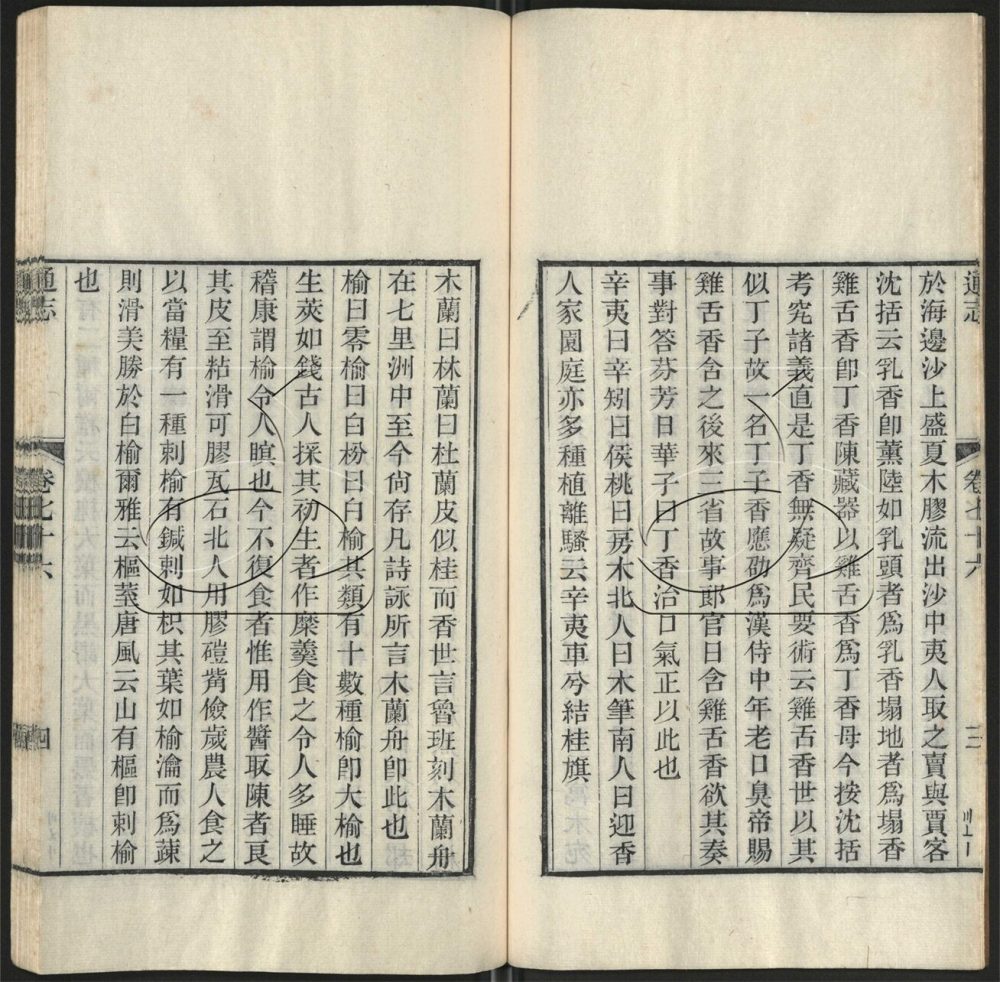 通志
卷七十六
三
於海邊沙上盛夏木膠流出沙中夷人取之賣與賈客
沈括云乳香卽薰陸如乳頭者爲乳香塌地者爲塌香
雞舌香卽丁香陳藏器以雞舌香爲丁香母今按沈括
考究諸義直是丁香無疑齊民要術云雞舌香世以其
似丁子故一名丁子香應劭爲漢侍中年老口臭帝賜
雞舌香含之後來三省故事郎官日含雞舌香欲其奏
事對答芬芳日華子曰丁香治口氣正以此也
辛夷曰辛矧曰侯桃曰房木北人曰木筆南人曰迎春
人家園庭亦多種植離騷云辛夷車兮結桂旗
木蘭曰林蘭曰杜蘭皮似桂而香世言魯班刻木蘭舟
在七里洲中至今尙存凡詩詠所言木蘭舟卽此也
榆曰零榆曰白枌曰白榆其類有十數種榆卽大榆也
生莢如錢古人採其初生者作糜羹食之令人多睡故
稽康謂榆令人瞑也今不復食者惟用作醬取陳者良
其皮至粘滑可膠瓦石北人用膠磑觜儉歲農人食之
以當糧有一種刺榆有鍼刺如枳其葉如榆瀹而爲蔬
則滑美勝於白榆爾雅云樞荎唐風云山有樞卽刺榆
也
通志
卷七十六
四